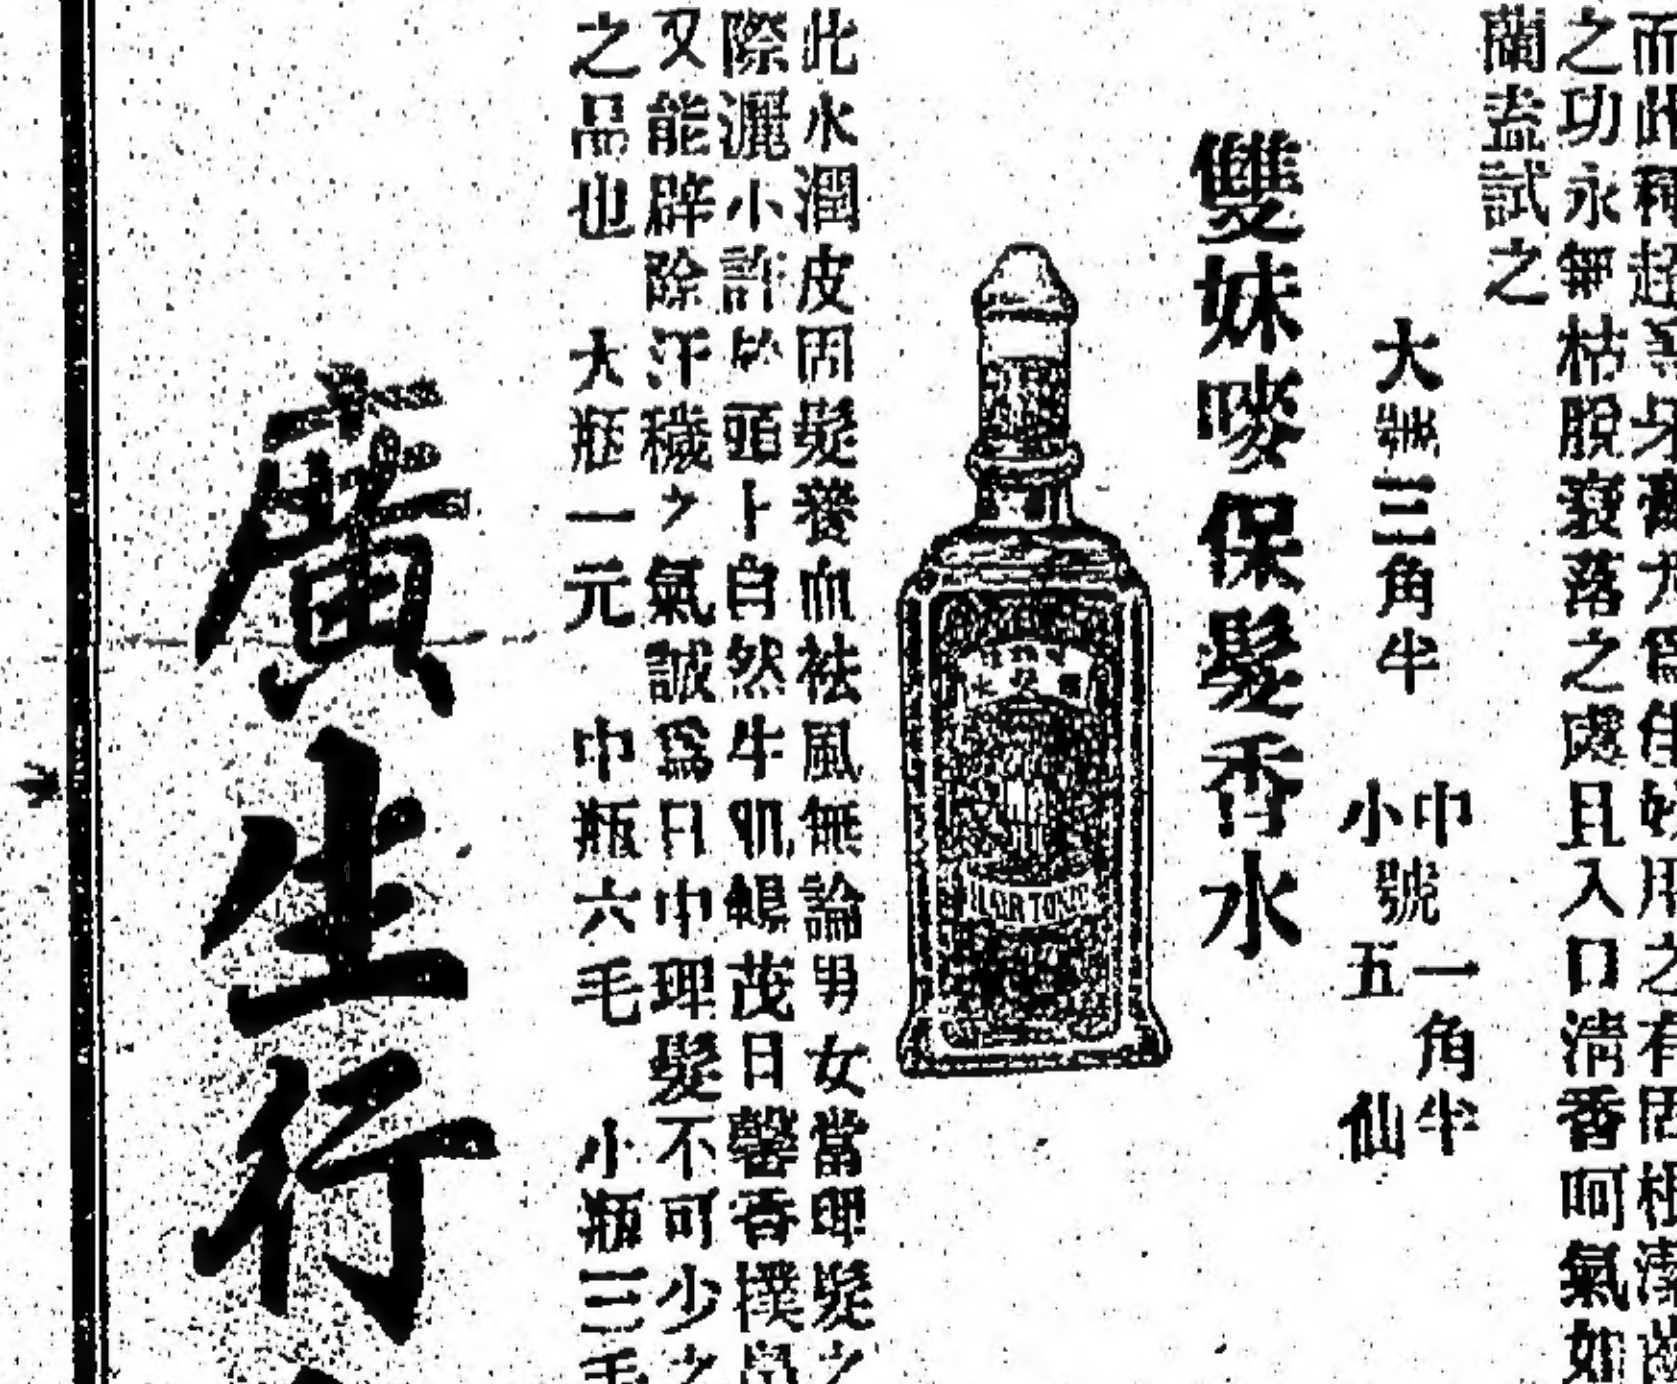 而此種超等牙膏尤為佳妙用之有固根潔齒
之功永無枯脫衰落之處且入口清香呵氣如
蘭盍試之
大號三角半
中號一角半
小號五仙
雙妹嘜保髮香水
HAIR TONIC
此水潤皮固髮養血祛風無論男女當理髮之
際灑小許於頭上自然生肌暢茂日馨香撲鼻
又能辟除汗穢之氣誠為日中理髮不可少之
之品也 大瓶一元 中瓶六毛 小瓶三毛
廣生行